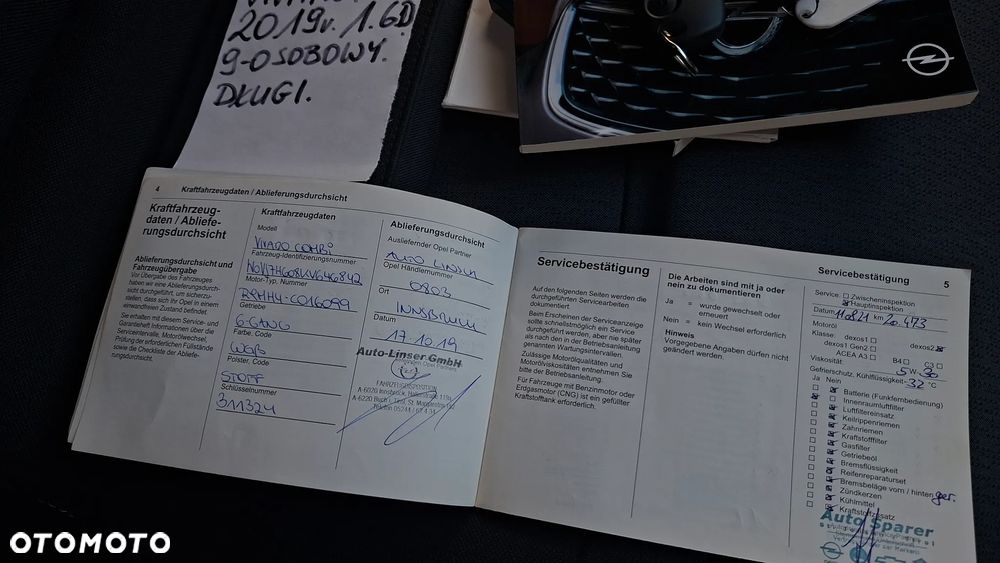 2019r. 1.6D
9-OSOBOWY.
DŁUGI.
4 Kraftfahrzeugdaten / Ablieferungsdurchsicht
Kraftfahrzeug-
daten / Abliefe-
rungsdurchsicht
Ablieferungsdurchsicht und
Fahrzeugübergabe
Vor Übergabe des Fahrzeuges
haben wir eine Ablieferungsdurch-
sicht durchgeführt, um sicherzu-
stellen, dass sich Ihr Opel in einem
einwandfreien Zustand befindet.
Sie erhalten mit diesem Service- und
Garantieheft Informationen über das
Servicesystem, Motorölwechsel,
Serviceintervalle,
Prüfung der erforderlichen Füllstände
sowie die Checkliste der Abliefe-
rungsdurchsicht.
Kraftfahrzeugdaten
Modell
VIVARO COMBI
Fahrzeug-Identifizierungsnummer
Motor-Typ, Nummer
Getriebe
6-GANG
Farbe, Code
WEIß
Polster, Code
STOFF
Schlüsselnummer
311324
Ablieferungsdurchsicht
Ausliefernder Opel Partner
AUTO LINSER
Opel Händlernummer
0803
Ort
INNSBRUCK
Datum
17.10.19
Auto-Linser GmbH
Servicebestätigung
Auf den folgenden Seiten werden die
durchgeführten Servicearbeiten
dokumentiert.
Beim Erscheinen der Serviceanzeige
sollte schnellstmöglich ein Service
durchgeführt werden, aber nie später
als nach den in der Betriebsanleitung
genannten Wartungsintervallen.
Zulässige Motorölqualitäten und
Motorölviskositäten entnehmen Sie
bitte der Betriebsanleitung.
Für Fahrzeuge mit Benzinmotor oder
Erdgasmotor (CNG) ist ein gefüllter
Kraftstofftank erforderlich.
Die Arbeiten sind mit ja oder
nein zu dokumentieren
Ja = wurde gewechselt oder
erneuert
Nein = kein Wechsel erforderlich
Hinweis
Vorgegebene Angaben dürfen nicht
geändert werden.
Servicebestätigung 5
Service: Zwischeninspektion
Hauptinspektion
Datum 11.08.21 km 20.473
Motoröl
Klasse: dexos1 dexos2
dexos1 Gen2
ACEA A3 B4 C3
Viskosität: 5 W- 30
Gefrierschutz, Kühlflüssigkeit -32 °C
Ja Nein
Batterie (Funkfernbedienung)
Innenraumluftfilter
Luftfiltereinsatz
Keilrippenriemen
Zahnriemen
Kraftstofffilter
Gasfilter
Getriebeöl
Bremsflüssigkeit
Reifenreparaturset
Bremsbeläge vorn / hinten ger.
Zündkerzen
Kühlmittel
Kraftstoffzusatz
Auto Sparer
OTOMOTO